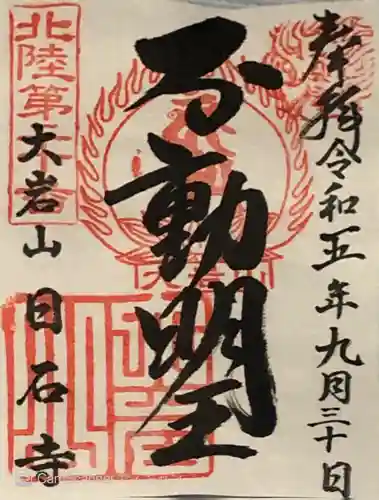 奉拝 令和五年九月三十日
不動明王
北陸第
大岩山 日石寺
CamScanner